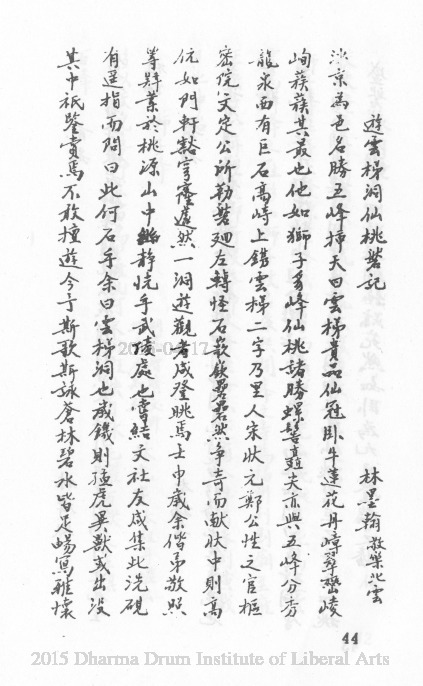 遊雲梯洞仙桃巖記
林墨翰 敬樂北雲
冰京為邑名勝五峰插天曰雲梯貴品仙冠臥牛蓮花丹嶂翠巒崚
峋蔟蔟其最也他如獅子秀峰仙桃諸勝螺髻矗夫亦與五峰分秀
龍泉西有巨石高峙上鐫雲梯二字乃里人宋狀元鄭公性之官樞
密院文定公所勒巖迴左轉怪石嶔嶔磊磊然爭奇而獻狀中則高
伉如門軒豁穹窿遽然一洞遊觀者咸登眺焉壬申歲余偕弟敬照
等肄業於桃源山中幽靜恍乎武陵處也嘗結文社友咸集此洗硯
有遥指而問曰此何石乎余曰雲梯洞也歲饑則猛虎異獸或出沒
其中祇鑒賞焉不敢擅遊今于斯歌斯詠蒼林碧水皆足暢寫雅懷
44
2015 Dharma Drum Institute of Liberal Arts